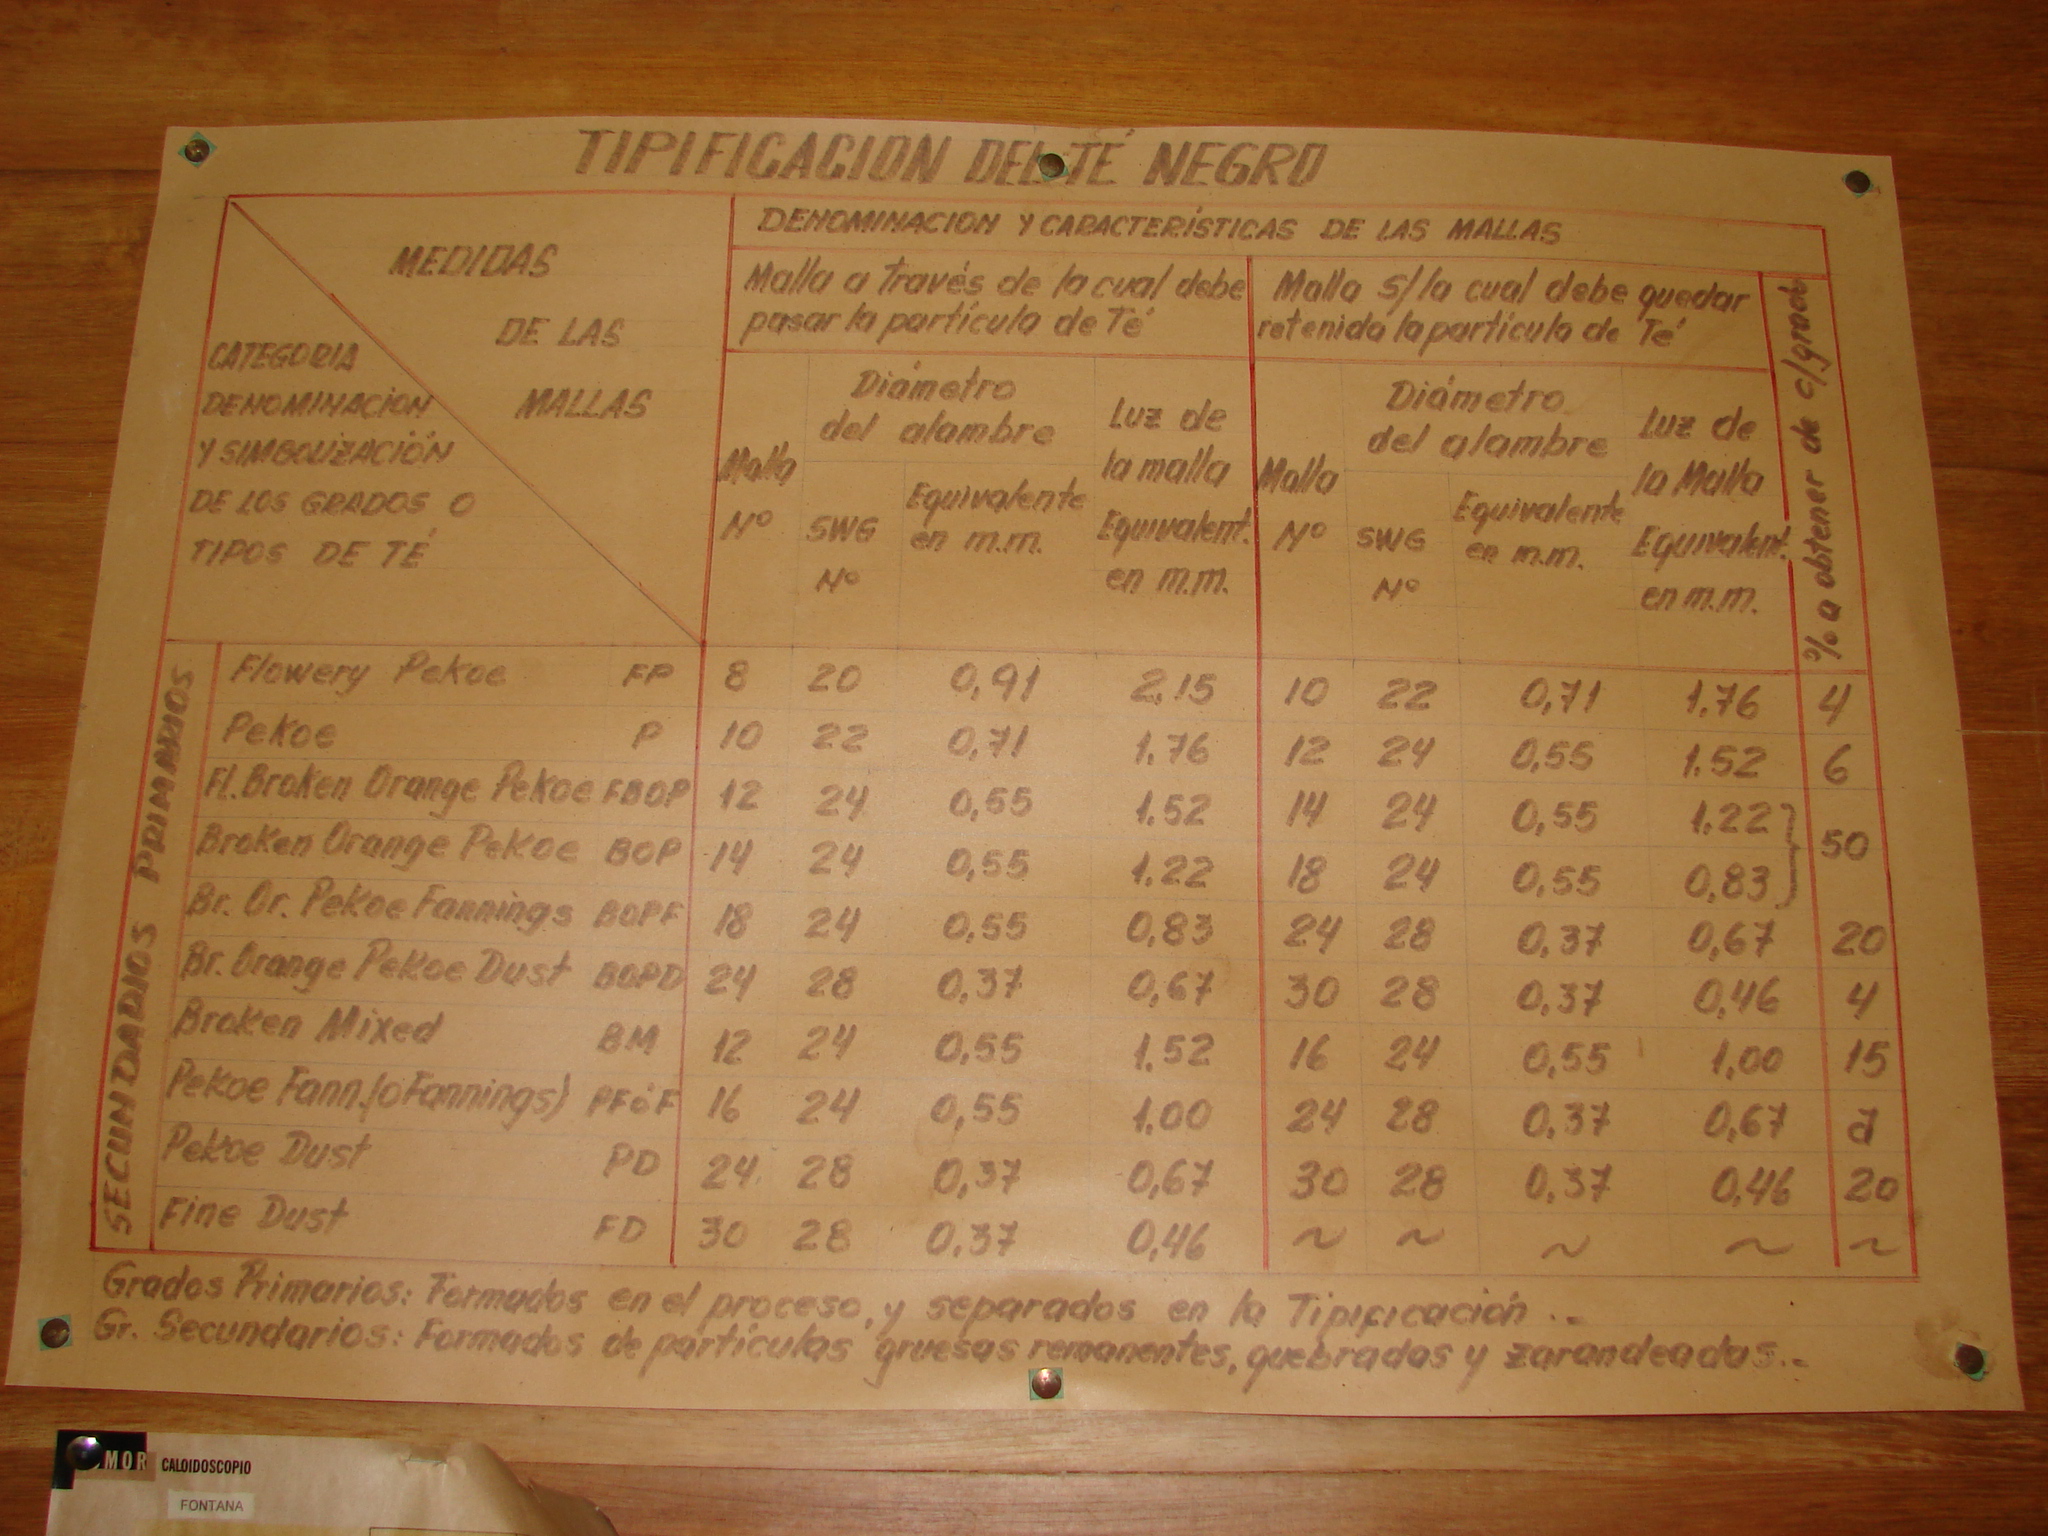 TIPIFICACION DEL TÉ NEGRO
MEDIDAS
DE LAS
MALLAS
CATEGORIA
DENOMINACION
Y SIMBOLIZACIÓN
DE LOS GRADOS O
TIPOS DE TÉ
DENOMINACION Y CARACTERÍSTICAS DE LAS MALLAS
Malla a través de la cual debe
pasar la partícula de Té
Malla s/la cual debe quedar
retenida la partícula de Té
% a obtener de c/grado
Malla
Nº
Diámetro
del alambre
SWG
Nº
Equivalente
en m.m.
Luz de
la malla
Equivalent.
en m.m.
Malla
Nº
Diámetro
del alambre
SWG
Nº
Equivalente
en m.m.
Luz de
la Malla
Equivalent.
en m.m.
SECUNDARIOS PRIMARIOS
Flowery Pekoe FP 8 20 0,91 2,15 10 22 0,71 1,76 4
Pekoe P 10 22 0,71 1,76 12 24 0,55 1.52 6
Fl. Broken Orange Pekoe FBOP 12 24 0,55 1,52 14 24 0,55 1.22
50
Broken Orange Pekoe BOP 14 24 0,55 1,22 18 24 0,55 0,83
Br. Or. Pekoe Fannings BOPF 18 24 0,55 0,83 24 28 0,37 0,67 20
Br. Orange Pekoe Dust BOPD 24 28 0,37 0,67 30 28 0,37 0,46 4
Broken Mixed BM 12 24 0,55 1,52 16 24 0,55 1,00 15
Pekoe Fann.(o Fannings) PF ó F 16 24 0,55 1,00 24 28 0,37 0,67 a
Pekoe Dust PD 24 28 0,37 0,67 30 28 0,37 0,46 20
Fine Dust FD 30 28 0,37 0,46 ~ ~ ~ ~ ~
Grados Primarios: Formados en el proceso, y separados en la Tipificación..-
Gr. Secundarios: Formados de partículas gruesas remanentes, quebradas y zarandeadas..-
MOR CALOIDOSCOPIO
FONTANA